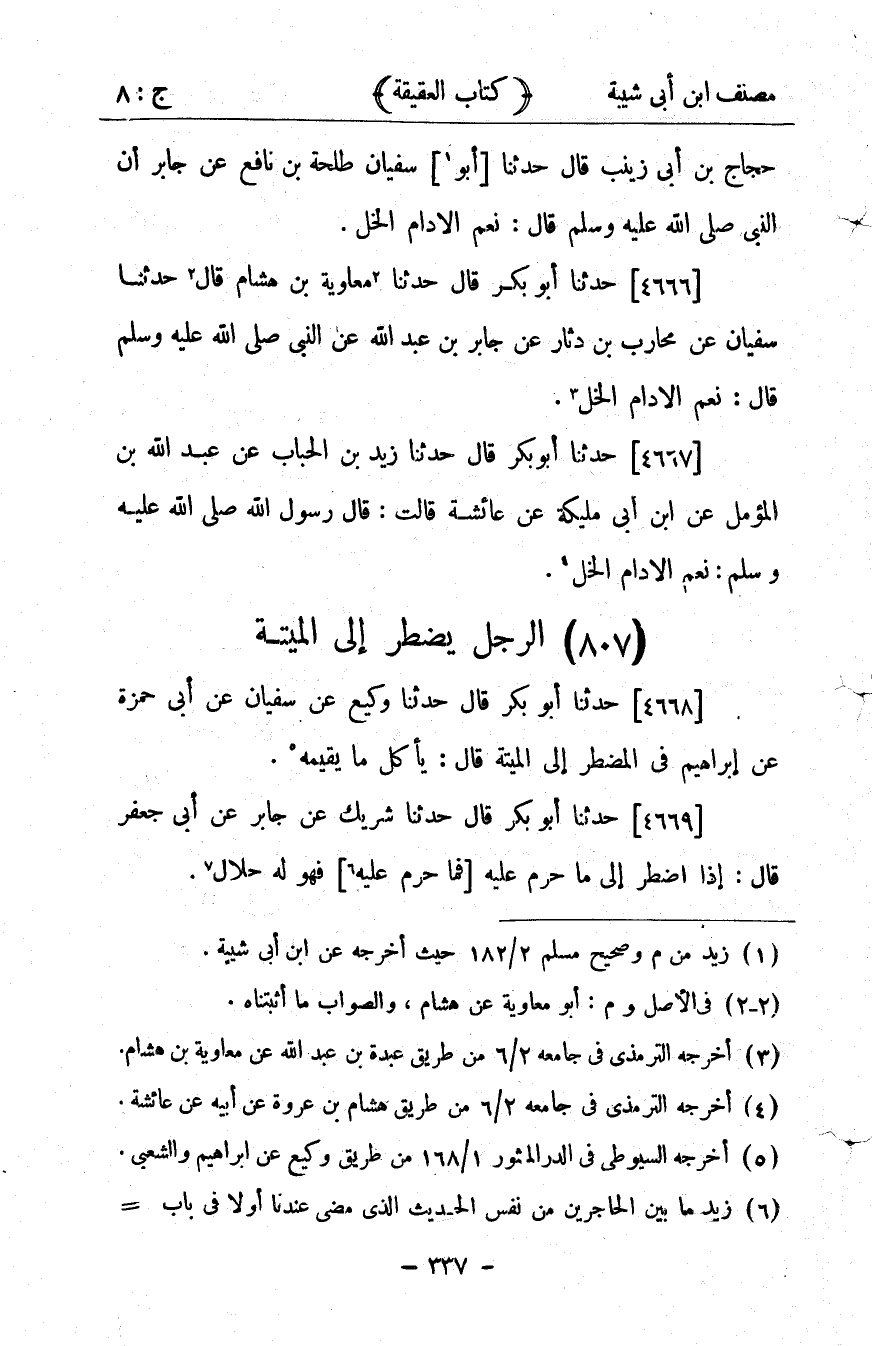 مصنف ابن أبى شيبة ﴿ كتاب العقيقة ﴾ ج : ٨
حجاج بن أبى زينب قال حدثنا [أبو١] سفيان طلحة بن نافع عن جابر أن
النبى صلى الله عليه وسلم قال : نعم الادام الخل .
[٤٦٦٦] حدثنا أبو بكر قال حدثنا ٢معاوية بن هشام قال٢ حدثنا
سفيان عن محارب بن دثار عن جابر بن عبد الله عن النبى صلى الله عليه وسلم
قال : نعم الادام الخل٣ .
[٤٦٦٧] حدثنا أبو بكر قال حدثنا زيد بن الحباب عن عبد الله بن
المؤمل عن ابن أبى مليكة عن عائشة قالت : قال رسول الله صلى الله عليه
و سلم : نعم الادام الخل٤ .
(٨٠٧) الرجل يضطر إلى الميتة
[٤٦٦٨] حدثنا أبو بكر قال حدثنا وكيع عن سفيان عن أبى حمزة
عن إبراهيم فى المضطر إلى الميتة قال : يأكل ما يقيمه٥ .
[٤٦٦٩] حدثنا أبو بكر قال حدثنا شريك عن جابر عن أبى جعفر
قال : إذا اضطر إلى ما حرم عليه [فما حرم عليه٦] فهو له حلال٧ .
(١) زيد من م وصحيح مسلم ١٨٢/٢ حيث أخرجه عن ابن أبى شيبة .
(٢-٢) فى الأصل و م : أبو معاوية عن هشام ، والصواب ما أثبتناه .
(٣) أخرجه الترمذى فى جامعه ٦/٢ من طريق عبدة بن عبد الله عن معاوية بن هشام.
(٤) أخرجه الترمذى فى جامعه ٦/٢ من طريق هشام بن عروة عن أبيه عن عائشة .
(٥) أخرجه السيوطى فى الدر المثور ١٦٨/١ من طريق وكيع عن ابراهيم والشعبي .
(٦) زيد ما بين الحاجرين من نفس الحديث الذى مضى عندنا أولا فى باب =
- ٣٣٧ -